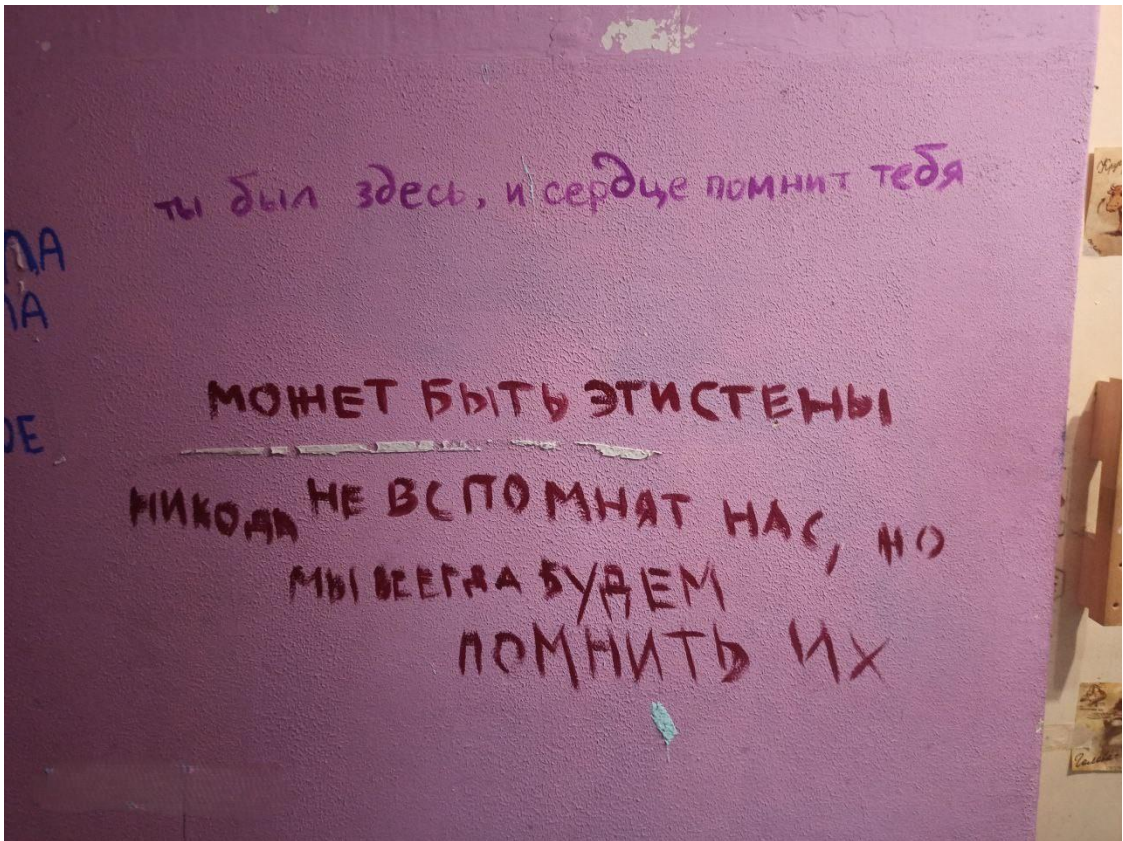 ты был здесь, и сердце помнит тебя
МОЖЕТ БЫТЬ ЭТИ СТЕНЫ
НИКОДА НЕ ВСПОМНЯТ НАС, НО
МЫ ВСЕГДА БУДЕМ
ПОМНИТЬ ИХ